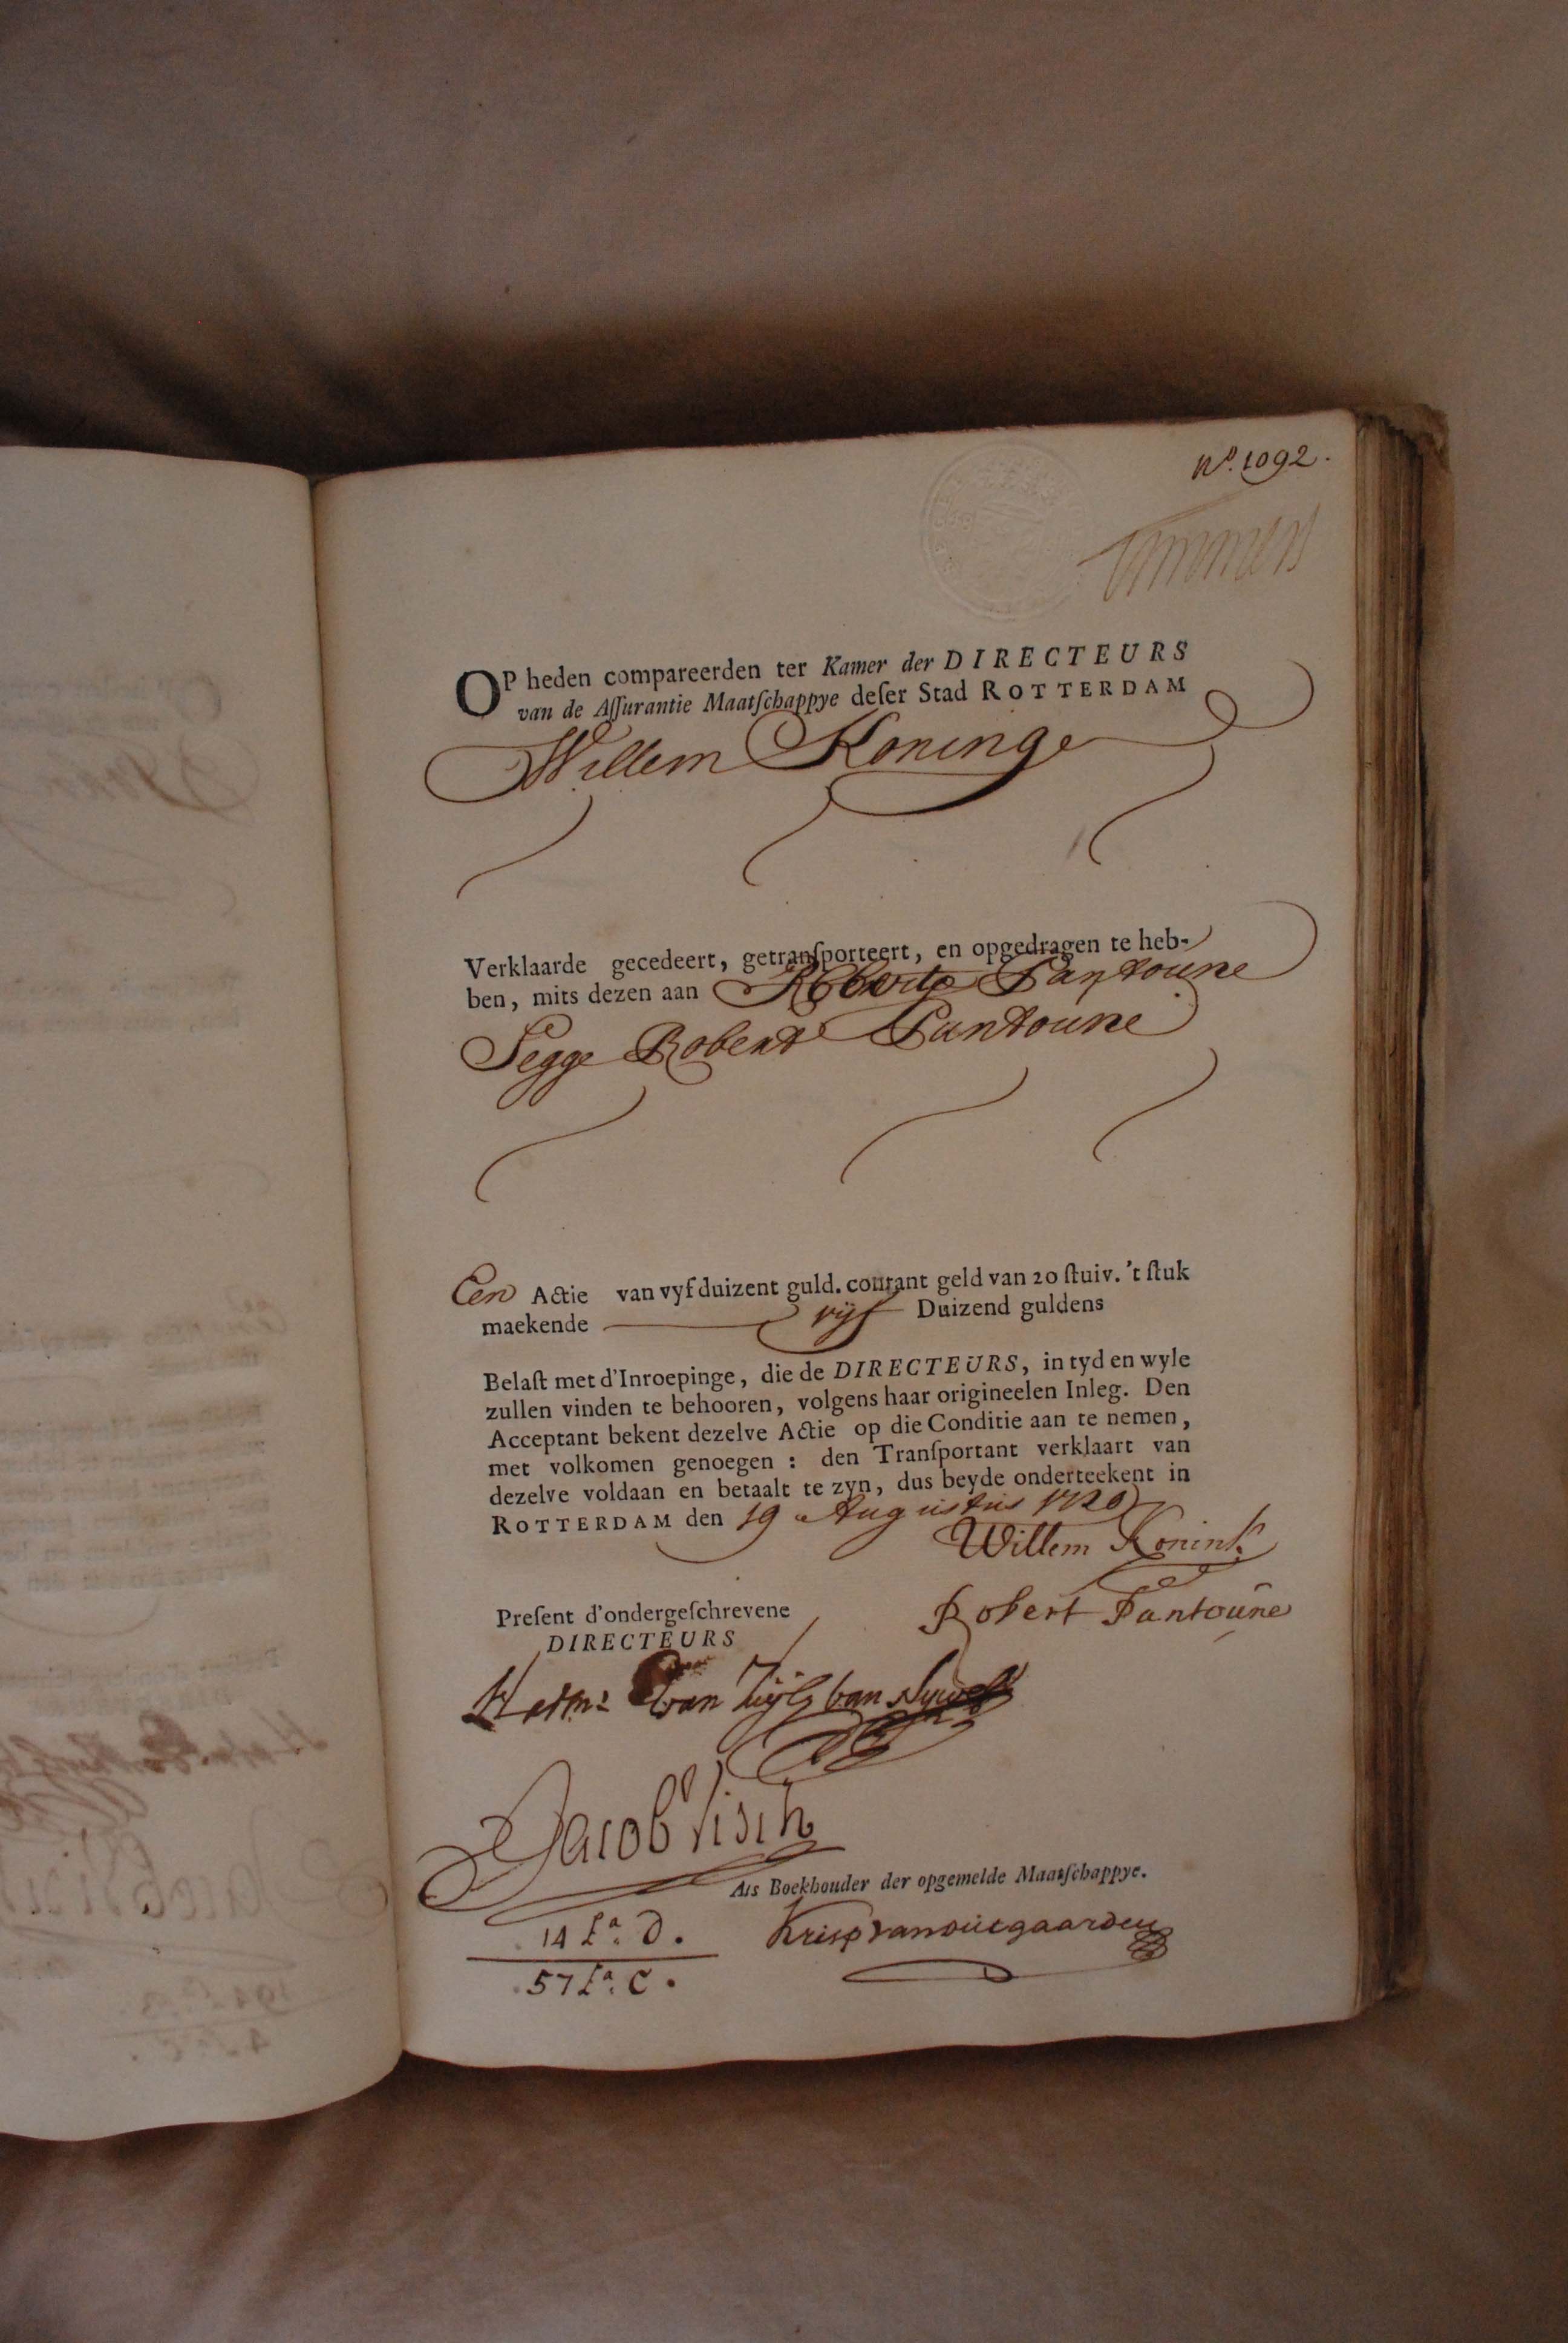 N.º 1092.
OP heden compareerden ter Kamer der DIRECTEURS
van de Aſſurantie Maatſchappye deſer Stad ROTTERDAM
Willem Koninge
Verklaarde gecedeert, getranſporteert, en opgedragen te heb-
ben, mits dezen aan Roberto Pantoune
Segge Robert Pantoune
Een Actie van vyf duizent guld. courant geld van 20 ſtuiv. 't ſtuk
maekende vijf Duizend guldens
Belaſt met d'Inroepinge, die de DIRECTEURS, in tyd en wyle
zullen vinden te behooren, volgens haar origineelen Inleg. Den
Acceptant bekent dezelve Actie op die Conditie aan te nemen,
met volkomen genoegen : den Tranſportant verklaart van
dezelve voldaan en betaalt te zyn, dus beyde onderteekent in
ROTTERDAM den 19 Augustus 1720
Willem Konink
Robert Pantoune
Preſent d'ondergeſchrevene
DIRECTEURS
Herm: van Zuyl van
Jacob Visch
Als Boekhouder der opgemelde Maatſchappye.
14 Lª. D.
57 Lª. C.
Krisp van outgaarden